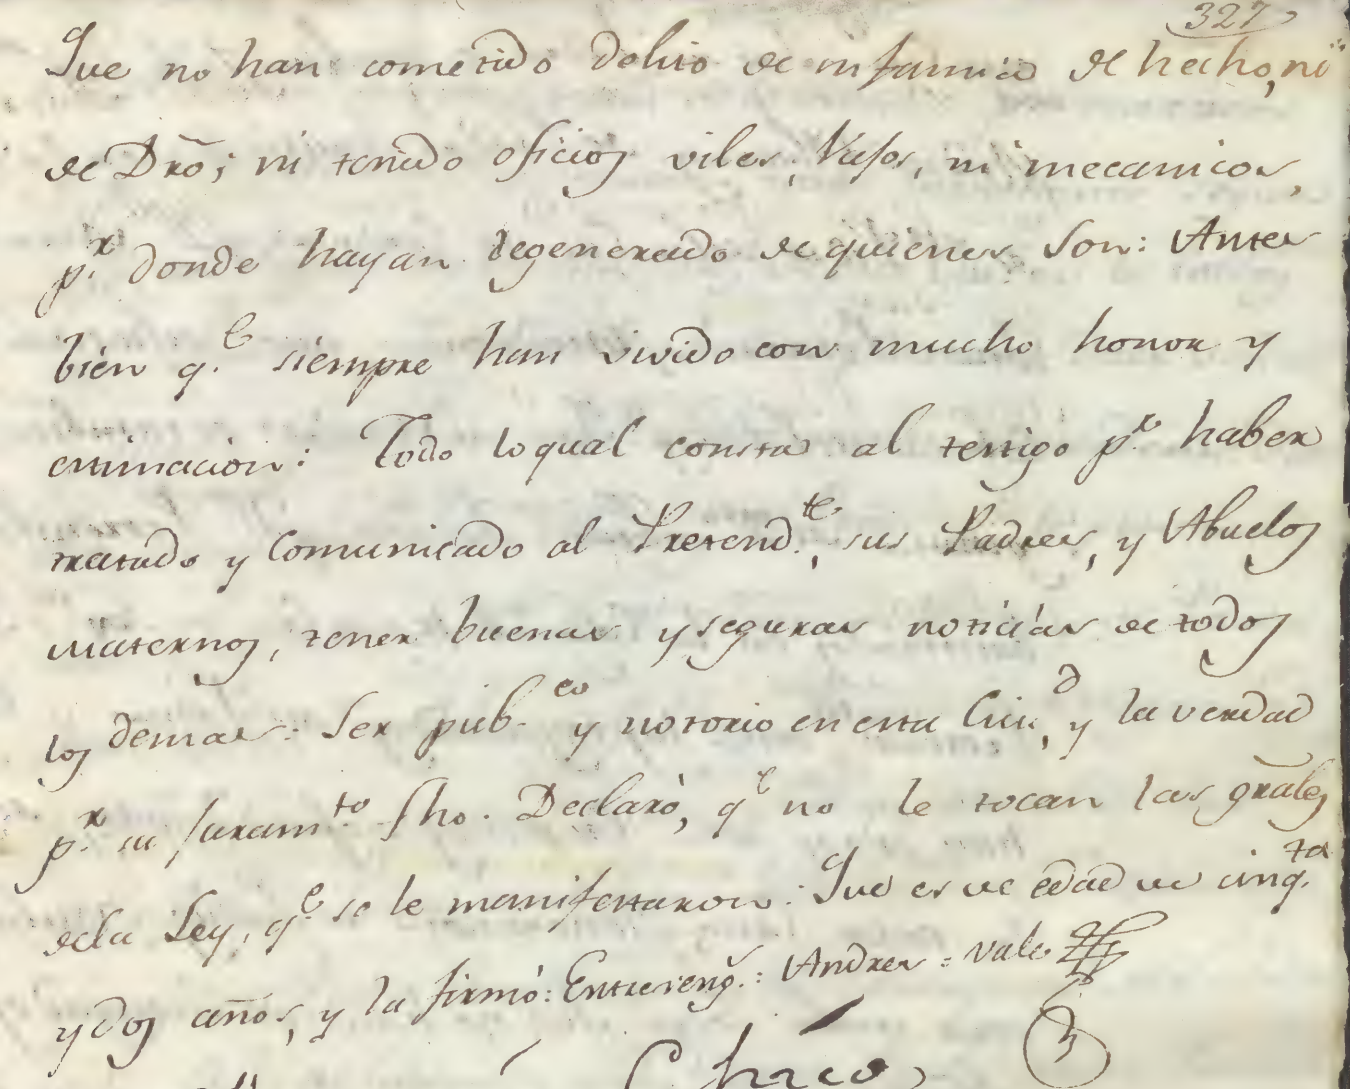 327
Que no han cometido delito de infamia de hecho, ni
de Dr̃o; ni tenido oficios viles, Vajos, ni mecanicos,
p.r donde hayan degenerado de quienes son: Antes
bien q.e siempre han vivido con mucho honor y
estimacion: Todo lo qual consta al testigo p.r haber
tratado y comunicado al Pretend.te, sus Padres, y Abuelos
maternos, tener buenas y seguras noticias de todos
los demas: Ser pub.co y notorio en esta Ciu.d, y la verdad
p.r su juram.to fho. Declaró, q.e no le tocan las gr̃ales
dela Ley, q.e se le manifestaron: Que es de edad de cinq.ta
y dos años, y la firmó: Entrereng.s: Andres = vale